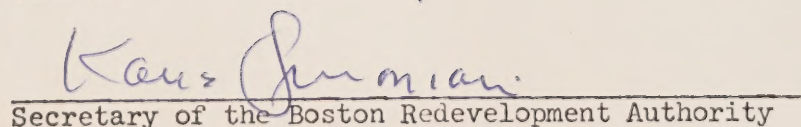 Kane Simonian
Secretary of the Boston Redevelopment Authority